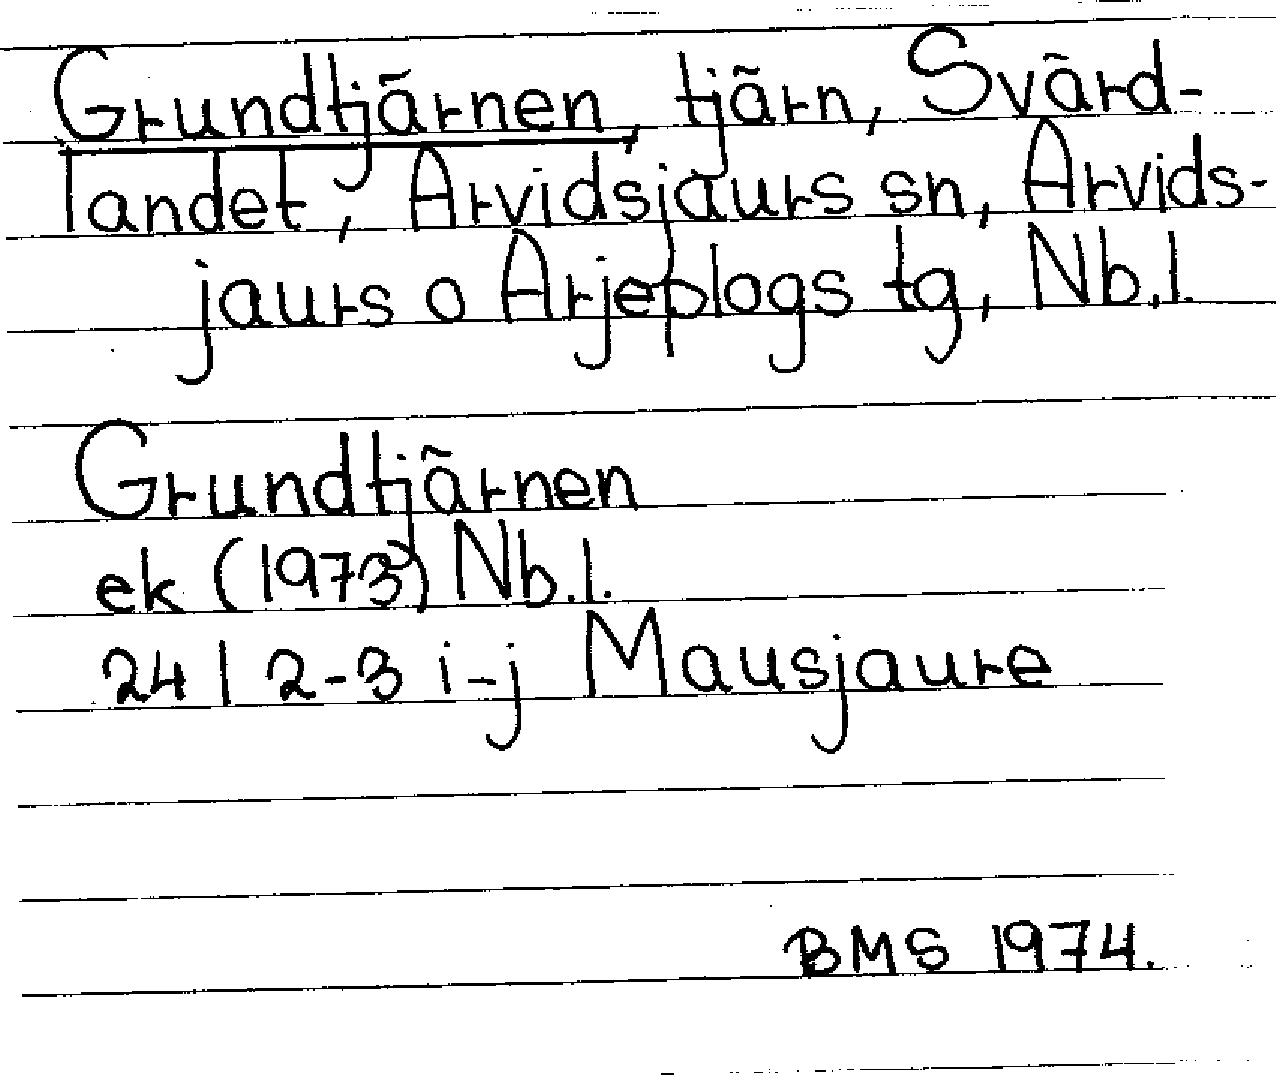 Grundtjärnen, tjärn, Svärd-
landet, Arvidsjaurs sn, Arvids-
jaurs o Arjeplogs tg, Nb.l.
Grundtjärnen
ek (1973) Nb.l.
24 I 2-3 i-j Mausjaure
BMS 1974.